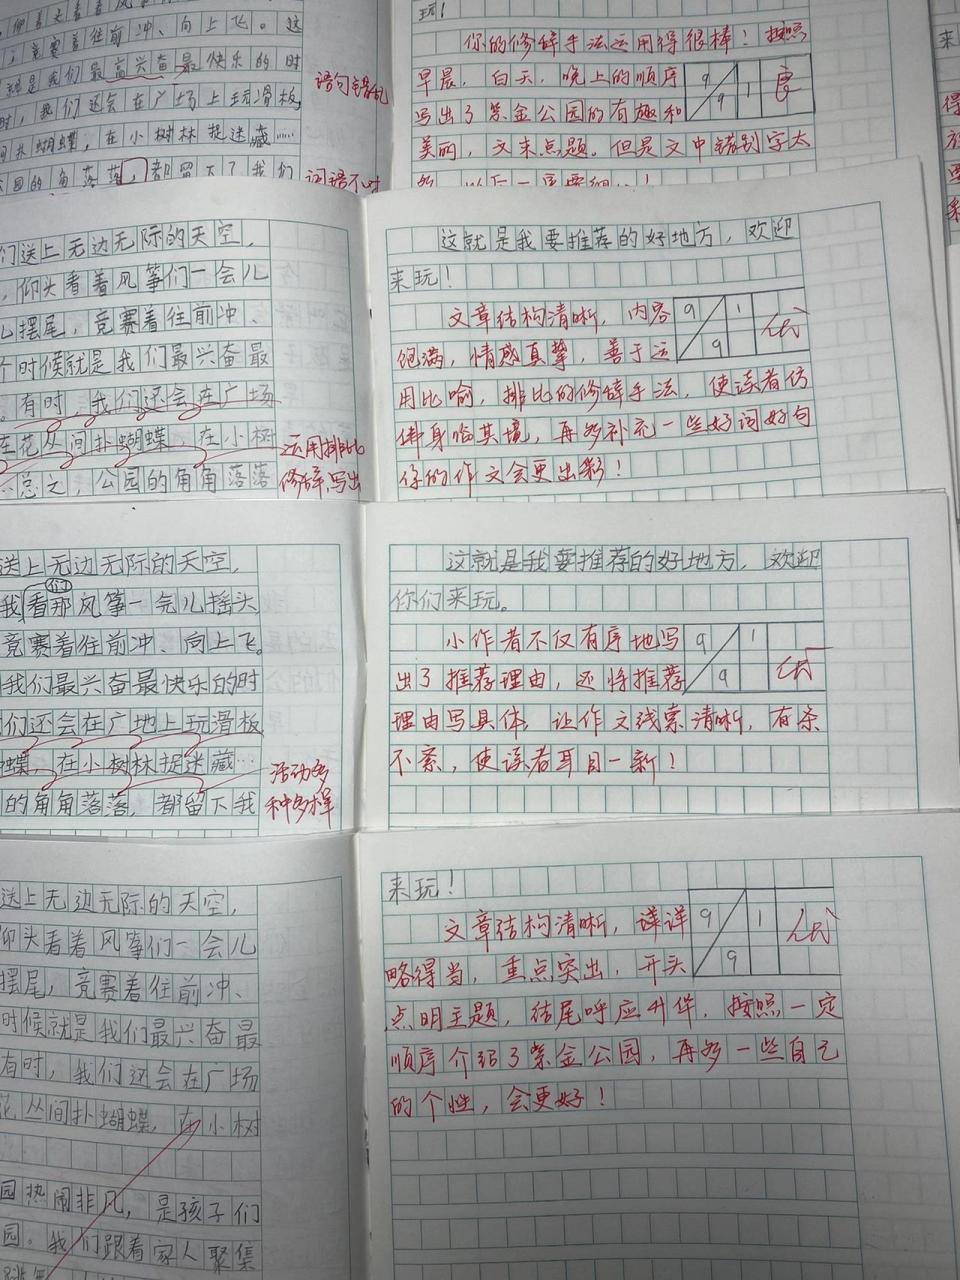 竞赛着往前冲、向上飞。这
就是我们最高兴奋最快乐的时
时，我们还会在广场上玩滑板
蝴蝶，在小树林捉迷藏……
语句错乱
园的角落落，都留下了我们
玩！
你的修辞手法运用得很棒！按照
早晨，白天，晚上的顺序
写出了紫金公园的有趣和
美丽，文末点题。但是文中错别字太
9
9
1
良
们送上无边无际的天空，
，仰头看着风筝们一会儿
摆尾，竞赛着往前冲、
个时候就是我们最兴奋最
。有时，我们还会在广场
在花丛间扑蝴蝶，在小树
…总之，公园的角角落落
运用排比
修辞，写出
这就是我要推荐的好地方，欢迎
来玩！
文章结构清晰，内容
饱满，情感真挚，善于运
用比喻，排比的修辞手法，使读者仿
佛身临其境，再多补充一些好词好句
你的作文会更出彩！
9
9
1
优
送上无边无际的天空，
我看那风筝一会儿摇头
竞赛着往前冲、向上飞。
我们最兴奋最快乐的时
们还会在广地上玩滑板
蝴蝶，在小树林捉迷藏…
的角角落落，都留下我
们
活动多
种多样
这就是我要推荐的好地方，欢迎
你们来玩。
小作者不仅有序地写
出了推荐理由，还将推荐
理由写具体，让作文线索清晰，有条
不紊，使读者耳目一新！
9
9
1
优
送上无边无际的天空，
仰头看着风筝们一会儿
摆尾，竞赛着往前冲、
时候就是我们最兴奋最
有时，我们还会在广场
花丛间扑蝴蝶，在小树
园热闹非凡，是孩子们
园。我们跟着家人聚集
来玩！
文章结构清晰，详详
略得当，重点突出，开头
点明主题，结尾呼应升华，按照一定
顺序介绍了紫金公园，再多一些自己
的个性，会更好！
9
9
1
优